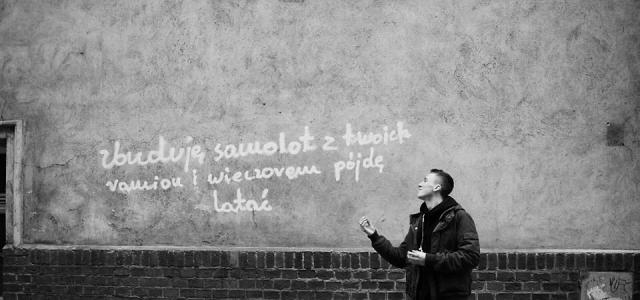 zbuduję samolot z twoich
ramion i wieczorem pójdę
latać